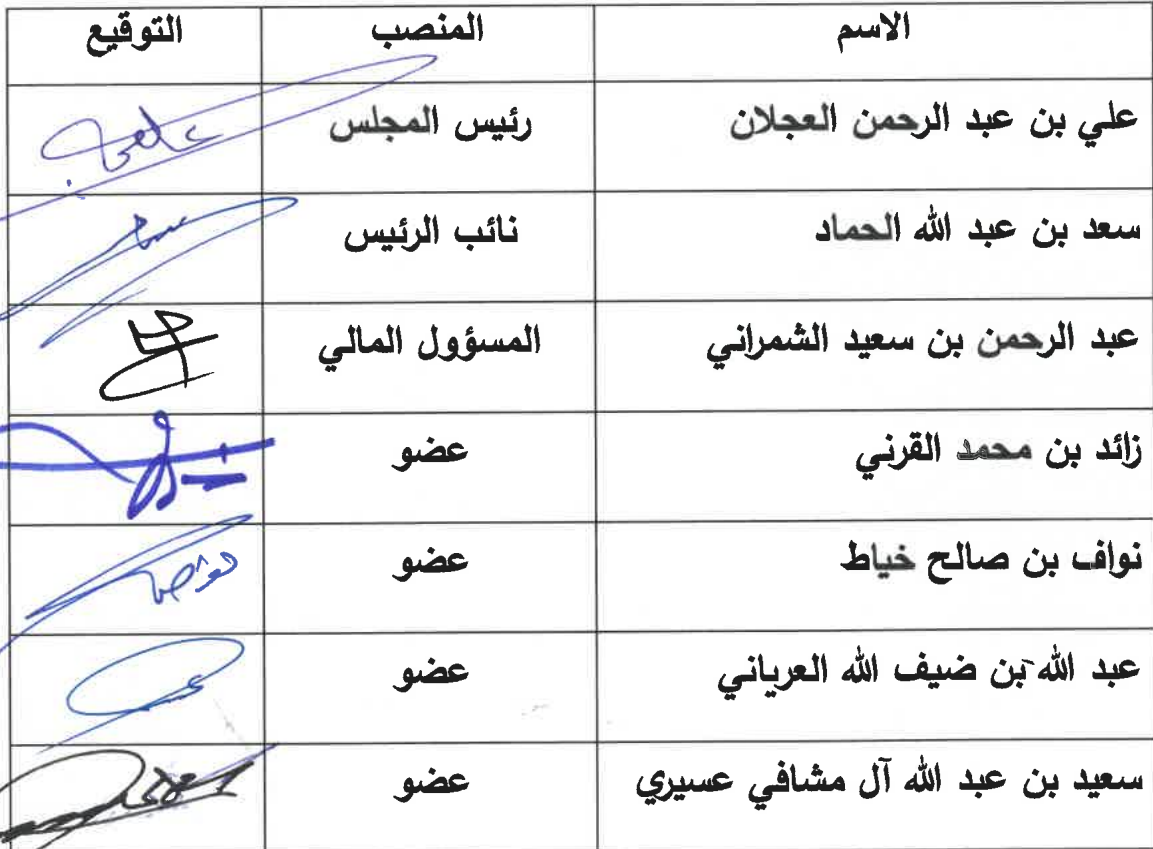 الاسم المنصب التوقيع
علي بن عبد الرحمن العجلان رئيس المجلس
سعد بن عبد الله الحماد نائب الرئيس
عبد الرحمن بن سعيد الشمراني المسؤول المالي
زائد بن محمد القرني عضو
نواف بن صالح خياط عضو
عبد الله بن ضيف الله العرياني عضو
سعيد بن عبد الله آل مشافي عسيري عضو